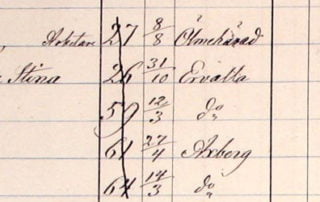 27 8/8 Ölmehärad
Stina 26 31/10 Ervalla
59 12/3 do
61 27/4 Arborg
64 14/3 do